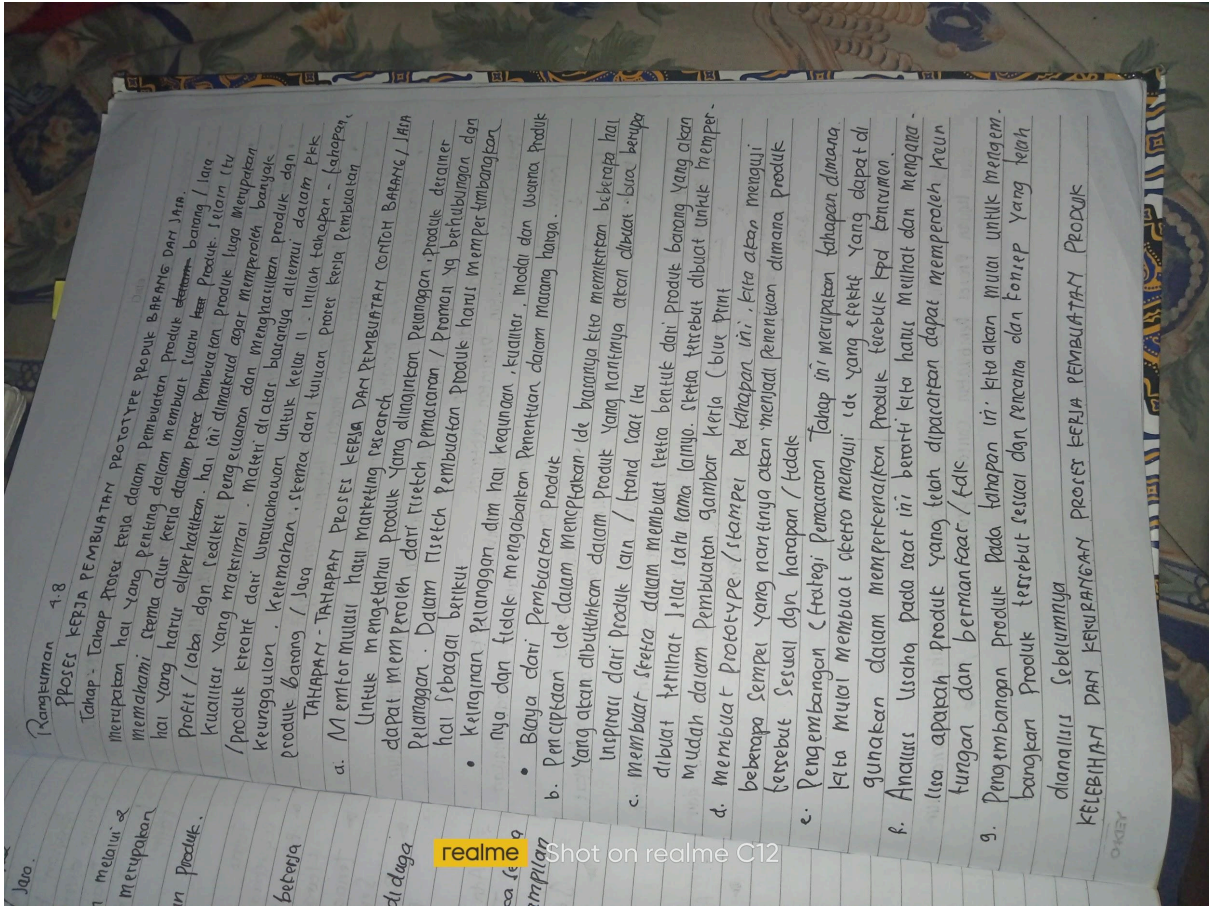 Rangkuman 4.8
PROSES KERJA PEMBUATAN PROTOTYPE PRODUK BARANG DAN JASA.
Tahap - Tahap Proses kerja dalam Pembuatan Produk barang / Jasa
merupakan hal yang Penting dalam membuat suatu Produk. Selain itu
memahami skema alur kerja dalam proses Pembuatan produk juga Merupakan
hal yang harus diperhatikan. hal ini dimaksud agar memperoleh banyak
Profit / laba dan sedikit Pengeluaran dan menghasilkan produk dgn
kualitas yang maksimal. Materi di atas biasanya ditemui dalam PKK
(Produk kreatif dan Wirausahawan untuk kelas 11. Inilah tahapan - tahapan,
keunggulan, kelemahan, skema dan tujuan Proses kerja Pembuatan
Produk barang / Jasa
TAHAPAN - TAHAPAN PROSES KERJA DAN PEMBUATAN CONTOH BARANG / JASA
a. Memformulasi hasil Marketing research
Untuk mengetahui produk yang diinginkan Pelanggan, Produk derainer
dapat memperoleh dari risetch Pemasaran / Promosi yg berhubungan dgn
Pelanggan. Dalam risetch Pembuatan Produk harus mempertimbangkan
hal sebagai berikut
• keinginan Pelanggan dlm hal kegunaan, kualitas, model dan warna Produk
nya dan tidak mengabaikan Penentuan dalam masang harga.
• Biaya dari Pembuatan Produk
b. Penciptaan Ide dalam menciptakan ide biasanya kita memikirkan beberapa hal
Yang akan dibutuhkan dalam Produk Yang nantinya akan dibuat. bisa berupa
Inspirasi dari Produk lain / trand saat Itu
c. membuat sketsa dalam membuat sketsa bentuk dari Produk barang Yang akan
dibuat terlihat Jelas satu sama lainya. Sketsa tersebut dibuat untuk memper-
mudah dalam Pembuatan gambar kerja (blue Print
d. membuat Prototype /stampel Pd tahapan ini, kita akan menguji
beberapa sempel yang nanting akan menjadi Penentuan dimana Produk
tersebut Sesuai dgn harapan / tidak
e. Pengembangan Strategi pemasaran Tahap ini merupakan tahapan dimana
kita mulai membuat sketsa menguji ide yang efektif Yang dapat di
gunakan dalam memperkenalkan Produk tersebut kpd konsumen.
f. Analisis Usaha pada saat ini berarti kita harus melihat dan mengana-
lisa apakah produk yang telah dipasarkan dapat memperoleh keun
tungan dan bermanfaat / tdk
g. Pengembangan Produk Pada tahapan ini kita akan mulai untuk mengem-
bangkan Produk tersebut sesuai dgn rencana dan konsep Yang telah
dianalisis Sebelumnya
KELEBIHAN DAN KEKURANGAN PROSES KERJA PEMBUATAN PRODUK
OKEY
Jasa.
melalui 2
merupakan
Produk.
bekerja
di duga
realme Shot on realme C12